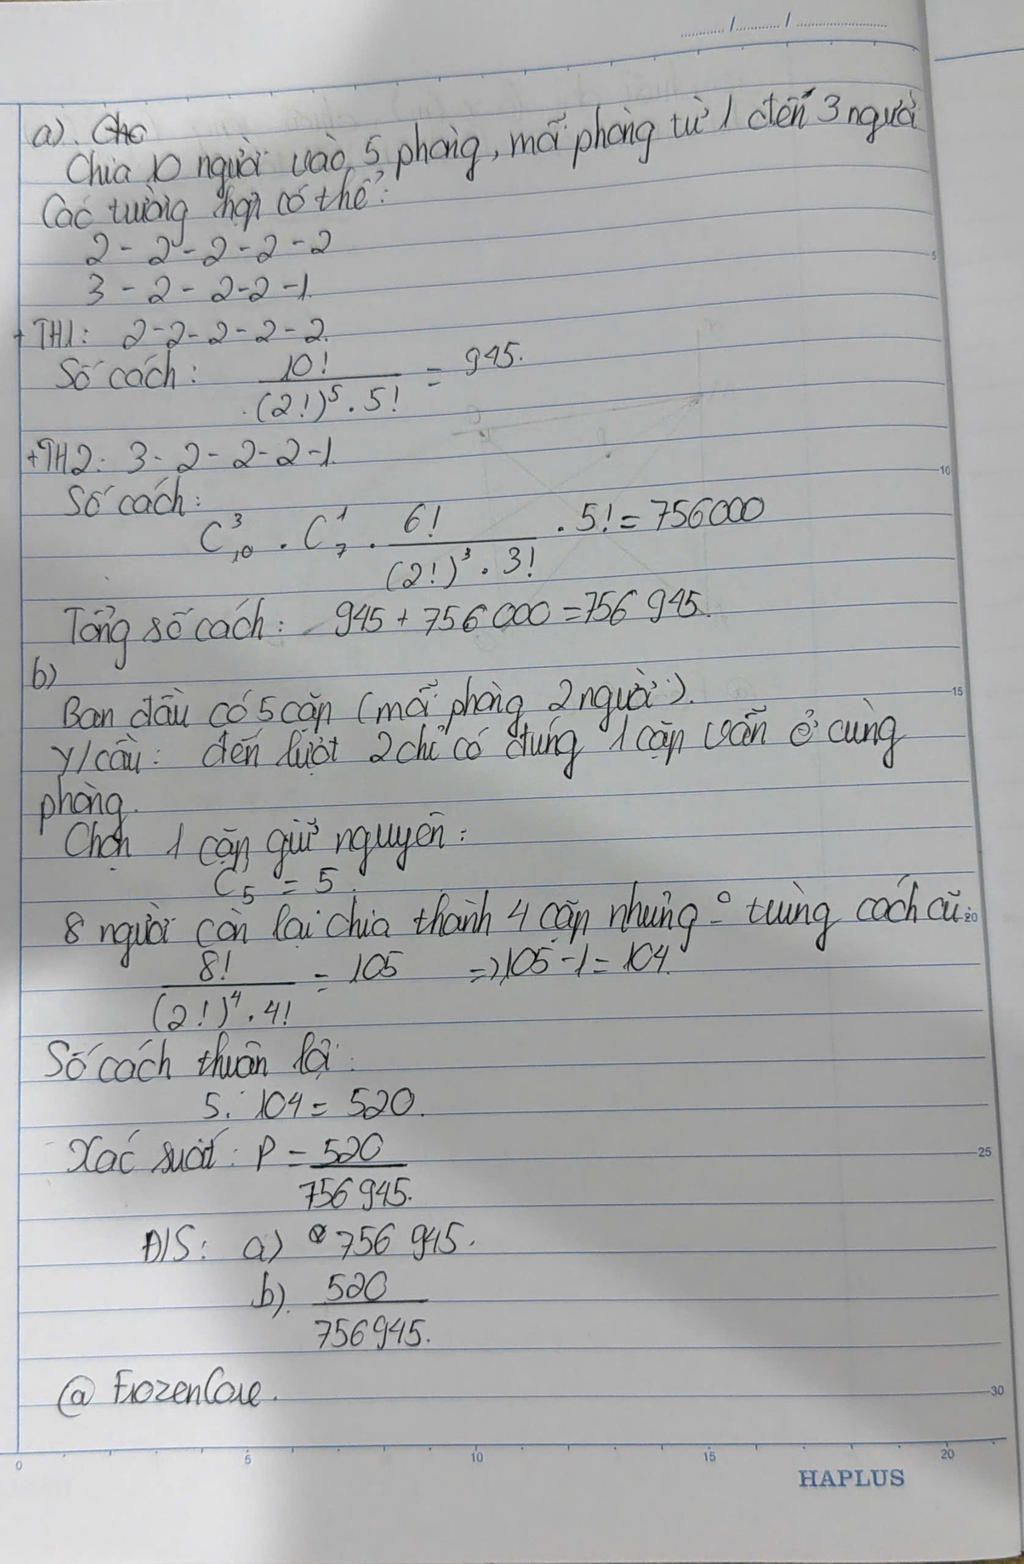 ......./......./............
a). Cho
Chia 10 người vào 5 phòng, mỗi phòng từ 1 đến 3 người
Các trường hợp có thể:
2 - 2 - 2 - 2 - 2
3 - 2 - 2 - 2 - 1.
+ TH1: 2 - 2 - 2 - 2 - 2.
Số cách: 10! / ((2!)^5 . 5!) = 945.
+ TH2: 3 - 2 - 2 - 2 - 1.
Số cách:
C^3_10 . C^1_7 . 6! / ((2!)^3 . 3!) . 5! = 756000
Tổng số cách: 945 + 756 000 = 756 945.
b)
Ban đầu có 5 cặp (mỗi phòng 2 người).
Y/cầu: đến lượt 2 chỉ có đúng 1 cặp vẫn ở cùng
phòng.
Chọn 1 cặp giữ nguyên:
C_5 = 5.
8 người còn lại chia thành 4 cặp nhưng ° trùng cách cũ:
8! / ((2!)^4 . 4!) = 105 => 105 - 1 = 104.
Số cách thuận lợi:
5. 104 = 520.
Xác suất: P = 520 / 756 945.
Đ/S: a) 756 945.
b). 520 / 756945.
@ FrozenCore.
5
10
15
20
25
30
0 5 10 15 20
HAPLUS